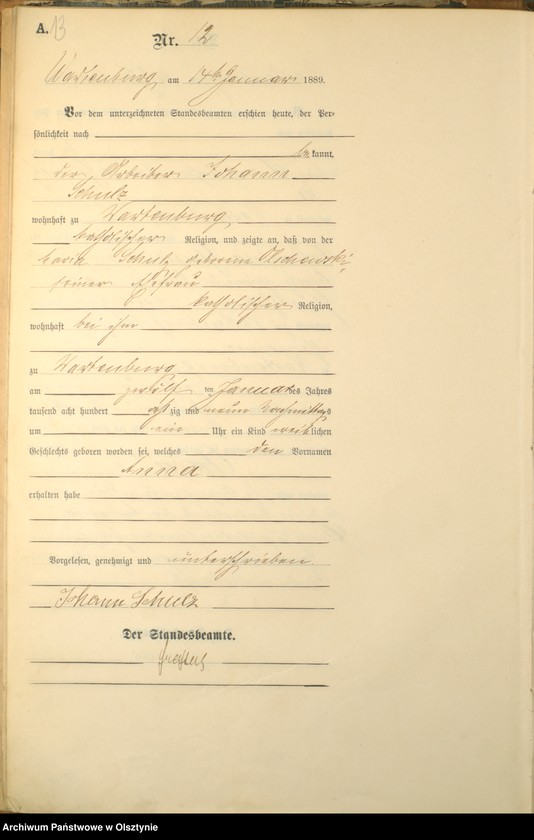 A. 13
Nr. 12
Wartenburg am 14ten Januar 1889.
Vor dem unterzeichneten Standesbeamten erschien heute, der Per-
sönlichkeit nach
be kannt,
der Arbeiter Johann
Schulz
wohnhaft zu Wartenburg
katholischer Religion, und zeigte an, daß von der
Maria Schulz geborene
seiner Ehefrau
katholischer Religion,
wohnhaft bei ihm
zu Wartenburg
am zwölf ten Januar des Jahres
tausend acht hundert acht zig und neun Nachmittags
um ein Uhr ein Kind weib lichen
Geschlechts geboren worden sei, welches den Vornamen
Anna
erhalten habe
Vorgelesen, genehmigt und unterschrieben.
Johann Schulz
Der Standesbeamte.
Archiwum Państwowe w Olsztynie